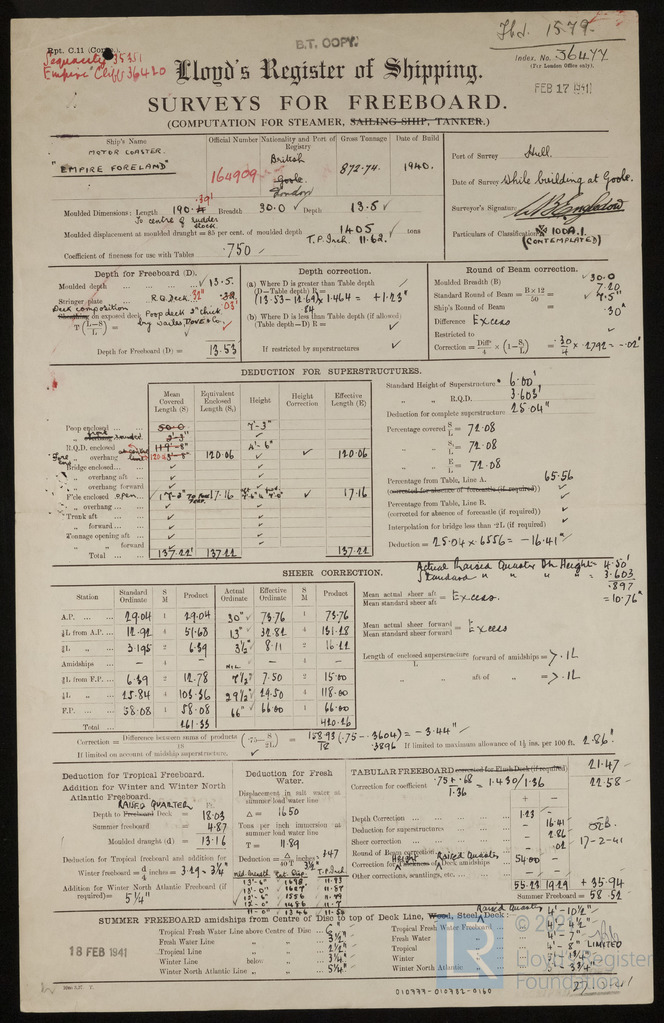 Fbd. 1579.
Rpt. C.11
B.T. COPY.
Index. No. 36477
(For London Office only).
Empire Cliff 36420
Lloyd's Register of Shipping.
FEB 17 1941
SURVEYS FOR FREEBOARD.
(COMPUTATION FOR STEAMER, SAILING SHIP, TANKER.)
Ship's Name
MOTOR COASTER.
"EMPIRE FORELAND"
Official Number
164909
Nationality and Port of Registry
British
Goole
London
Gross Tonnage
872.74.
Date of Build
1940.
Port of Survey Hull.
Date of Survey While building at Goole.
Surveyor's Signature
Particulars of Classification 100A.1.
(CONTEMPLATED)
Moulded Dimensions: Length 190.39' Breadth 30.0 Depth 13.5
To centre of rudder stock
Moulded displacement at moulded draught = 85 per cent. of moulded depth 1405 tons
T.P.Inch. 11.62.
Coefficient of fineness for use with Tables .750
Depth for Freeboard (D).
Moulded depth ... 13.5.
Stringer plate ... R.Q.Deck
Deck composition
Sheathing on exposed deck Poop deck 2" thick
T (L-S/L) =
Depth for Freeboard (D) = 13.53
Depth correction.
(a) Where D is greater than Table depth
(D—Table depth) R =
(13.53 - 12.69) 1.464 = +1.23"
.84
(b) Where D is less than Table depth (if allowed)
(Table depth—D) R =
If restricted by superstructures
Round of Beam correction.
Moulded Breadth (B) 30.0
Standard Round of Beam = B × 12 / 50 = 7.20
Ship's Round of Beam = 7.5"
Difference Excess .30"
Restricted to
Correction = Diff/4 × (1 - S/L) = .30/4 × .2792 = -.02"
DEDUCTION FOR SUPERSTRUCTURES.
Mean Covered Length (S)
Equivalent Enclosed Length (S₁)
Height
Height Correction
Effective Length (E)
Poop enclosed ... 7'-3"
R.Q.D. enclosed 4'-6"
" overhang 120.06 120.06
Bridge enclosed...
" overhang aft
" overhang forward
F'cle enclosed open 17'-2" 17.16 17.16
" overhang ...
Trunk aft
" forward...
Tonnage opening aft
" " forward
Total ... 137.22' 137.22 137.22
Standard Height of Superstructure 6.00'
" " R.Q.D. 3.603'
Deduction for complete superstructure 25.04"
Percentage covered S/L = 72.08
" " S₁/L = 72.08
" " E/L = 72.08
Percentage from Table, Line A. 65.56
(corrected for absence of forecastle (if required))
Percentage from Table, Line B.
(corrected for absence of forecastle (if required))
Interpolation for bridge less than ·2L (if required)
Deduction = 25.04 × .6556 = -16.41"
SHEER CORRECTION.
Actual Raised Quarter Dk Height = 4.50'
Standard " " " " = 3.603
.897
= 10.76"
Station Standard Ordinate S M Product Actual Ordinate Effective Ordinate S M Product
A.P. ... 29.04 1 29.04 30" 73.76 1 73.76
⅙L from A.P. ... 12.92 4 51.68 13" 32.82 4 131.28
⅓L " 3.195 2 6.39 3½" 8.11 2 16.22
Amidships - 4 - NIL - 4 -
⅓L from F.P. ... 6.39 2 12.78 7½" 7.50 2 15.00
⅙L " 25.84 4 103.36 29½" 29.50 4 118.00
F.P. ... 58.08 1 58.08 66" 66.00 1 66.00
Total ... 261.33 420.26
Mean actual sheer aft / Mean standard sheer aft = Excess.
Mean actual sheer forward / Mean standard sheer forward = Excess
Length of enclosed superstructure / L forward of amidships = >.1L
" " aft of " = >.1L
Correction = Difference between sums of products / 18 (·75 - S/2L) = 158.93/18 (.75 - .3604) = -3.44"
.3896
If limited to maximum allowance of 1½ ins. per 100 ft. 2.86"
If limited on account of midship superstructure.
Deduction for Tropical Freeboard.
Addition for Winter and Winter North Atlantic Freeboard.
RAISED QUARTER
Depth to Freeboard Deck = 18.03
Summer freeboard = 4.87
Moulded draught (d) = 13.16
Deduction for Tropical freeboard and addition for
Winter freeboard = d/4 inches = 3.29 = 3¼"
Addition for Winter North Atlantic Freeboard (if required) = 5¼"
Deduction for Fresh Water.
Displacement in salt water at summer load water line
Δ = 1650
Tons per inch immersion at summer load water line
T = 11.89
Deduction = Δ/40 T inches = 3.47
3½"
TABULAR FREEBOARD corrected for Flush Deck (if required) 21.47
Correction for coefficient .75 + .68 / 1.36 = 1.430/1.36 22.58
+ -
Depth Correction ... 1.23 -
Deduction for superstructures ... - 16.41
Sheer correction ... - 2.86
Round of Beam correction ... - .02
Correction for Height Raised Quarter Deck amidships 54.00 -
Other corrections, scantlings, etc. ...
55.23 19.29 +35.94
Summer Freeboard = 58.52
17-2-41
SUMMER FREEBOARD amidships from Centre of Disc to top of Deck Line, Wood, Steel, Raised Quarter Deck: 4'-10½"
Tropical Fresh Water Line above Centre of Disc ... 6"
Fresh Water Line " " ... 3½"
Tropical Line " " ... 2½"
Winter Line below " ... 3¼"
Winter North Atlantic Line " " ... 5¼"
Tropical Fresh Water Freeboard 4'-4½"
Fresh Water " 4'-7"
Tropical " 4'-8"
Winter "
Winter North Atlantic " 5'-3¾"
18 FEB 1941
© 2021
LR
LIMITED
Lloyd's Register
Foundation
010777-010782-0160